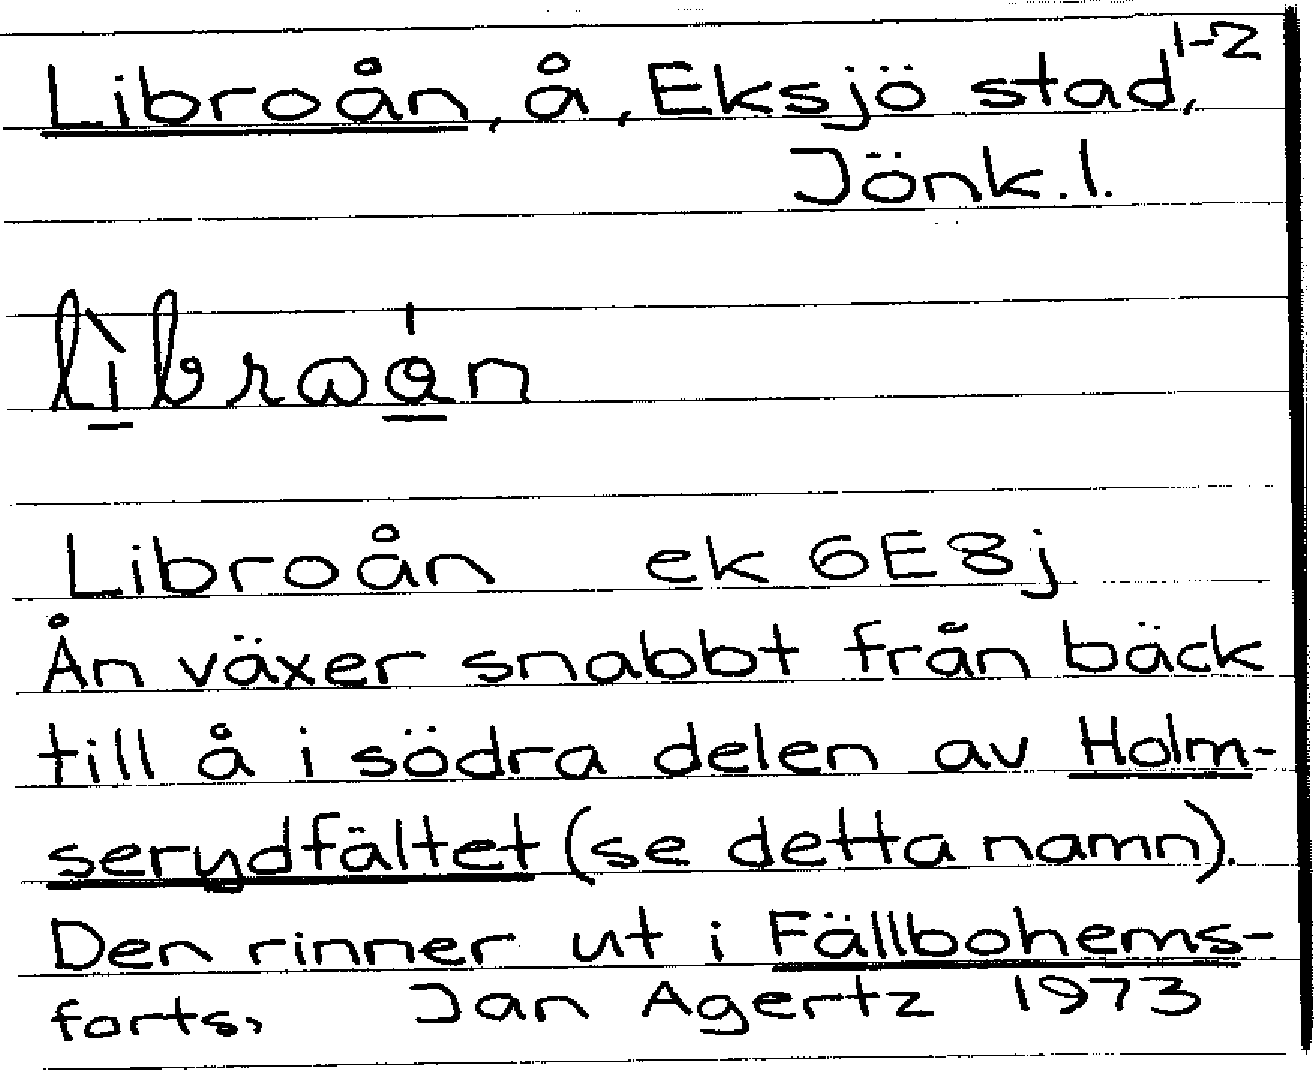 1-2
Libroån, å, Eksjö stad,
Jönk.l.
Libroån ek 6E8j
Ån växer snabbt från bäck
till å i södra delen av Holm-
serydfältet (se detta namn).
Den rinner ut i Fällbohems-
forts, Jan Agertz 1973